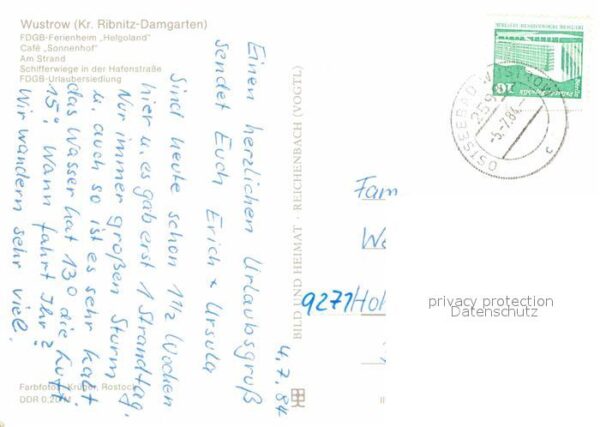 Wustrow (Kr. Ribnitz-Damgarten)
FDGB-Ferienheim „Helgoland"
Café „Sonnenhof"
Am Strand
Schifferwiege in der Hafenstraße
FDGB-Urlaubersiedlung
4.7.84
Einen herzlichen Urlaubsgruß
sendet Euch Erich + Ursula
Sind heute schon 1 1/2 Wochen
hier u. es gab erst 1 Strandtag.
Nur immer großen Sturm
u. auch so ist es sehr kalt
das Wasser hat 13° die Luft
15°. Wann fahrt Ihr?
Wir wandern sehr viel.
Farbfotos: Krüger, Rostock
DDR 0,20
BILD UND HEIMAT · REICHENBACH (VOGTL)
10
OSTSEEBAD WUSTROW
-5.-7.84.-
c
Fam
We
9271 Hoh
privacy protection
Datenschutz